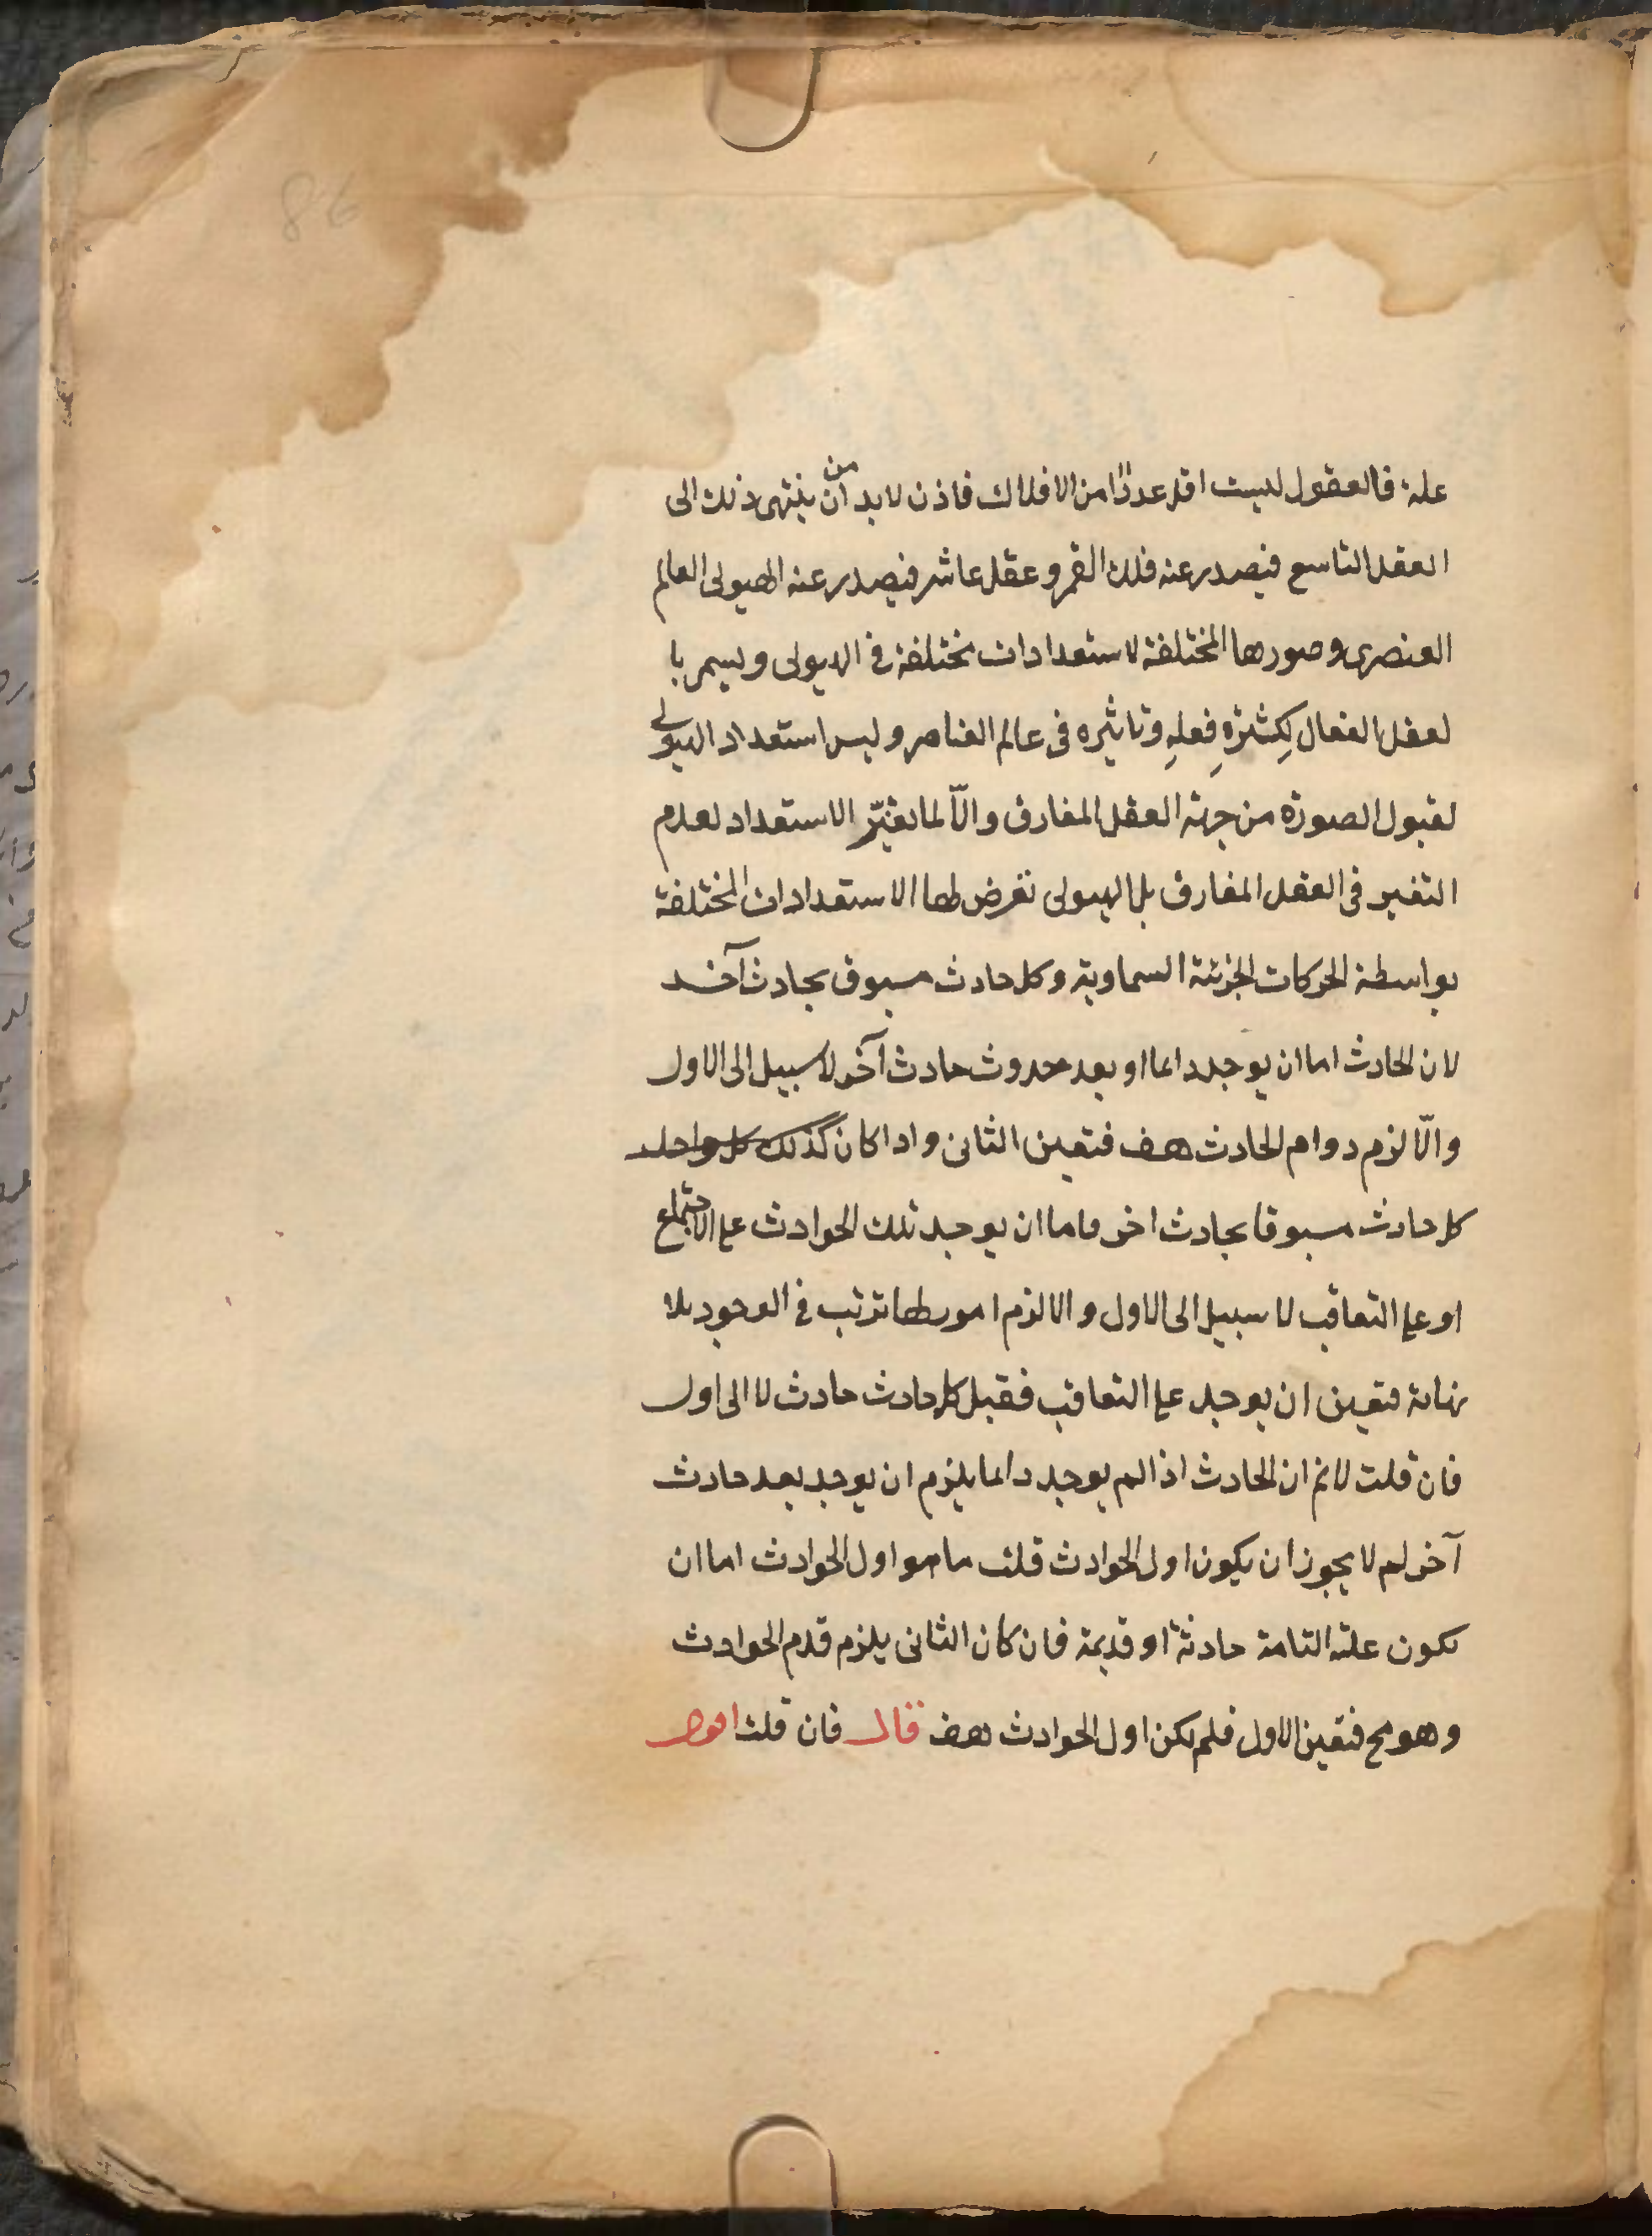 86
علة فالعقول ليست اقل عددًا من الافلاك فاذن لابد من ان ينتهى ذلك الى
العقل التاسع فيصدر عنه فلك القمر وعقل عاشر فيصدر عنه الهيولى العالم
العنصرى وصورها المختلفة لاستعدادات مختلفة فى الهيولى ويسمى با
لعقل الفعال لِكثرةِ فِعلهِ وتاثيره فى عالم العناصر وليس استعداد الهيولى
لقبول الصورة من جهة العقل المفارق والّا لما تغيّر الاستعداد لعدم
التغير فى العقل المفارق بل الهيولى تعرض لها الاستعدادات المختلفة
بواسطة الحركات الجزئية السماوية وكل حادث مسبوق بحادث آخر
لان الحادث اما ان يوجد دائما او بعد حدوث حادث آخر لا سبيل الى الاول
والّا لزم دوام الحادث هف فتعين الثانى واذا كان كذلك كل واحد
كل حادث مسبوقا بحادث اخر فاما ان يوجد تلك الحوادث على الاجتماع
او على التعاقب لا سبيل الى الاول والا لزم امور لها ترتب فى الوجود بلا
نهاية فتعين ان يوجد على التعاقب فقبل كل حادث حادث لا الى اول
فان قلت لانم ان الحادث اذا لم يوجد دائما يلزم ان يوجد بعد حادث
آخر لم لا يجوز ان يكون اول الحوادث قلت ما هو اول الحوادث اما ان
يكون علته التامة حادثة او قديمة فان كان الثانى يلزم قدم الحوادث
وهو مح فتعين الاول فلم يكن اول الحوادث هف قال فان قلت اقول